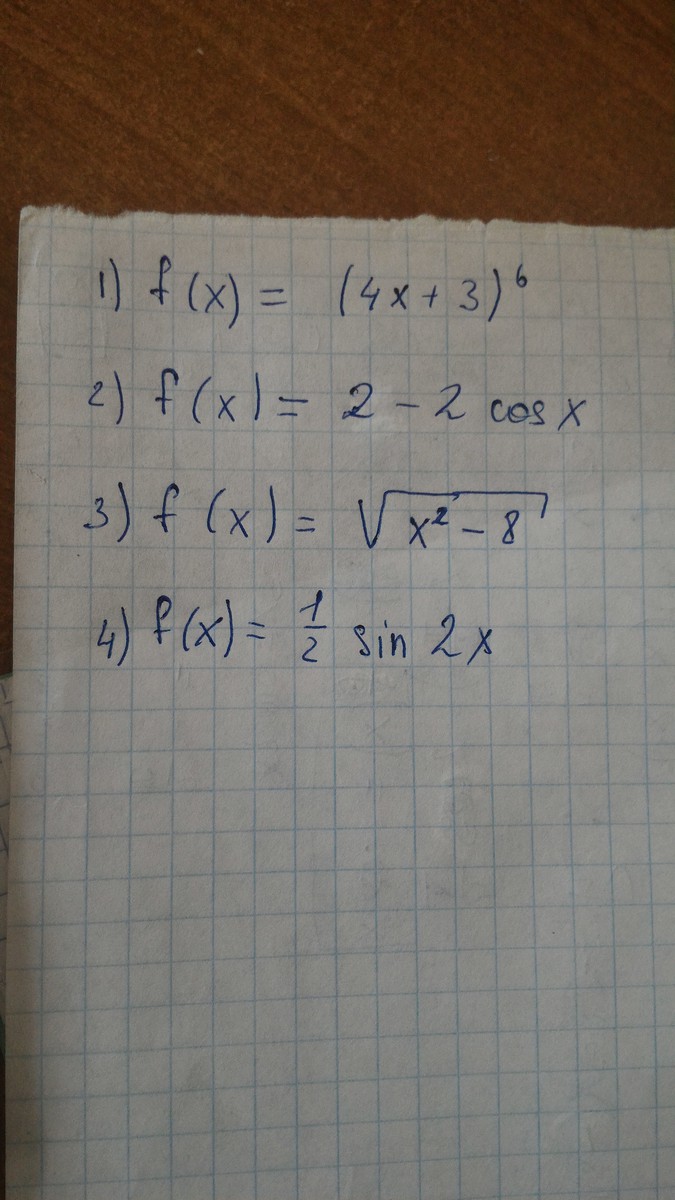 1) f(x) = (4x + 3)⁶
2) f(x) = 2 - 2 cos x
3) f(x) = √(x² - 8)
4) f(x) = 1/2 sin 2x